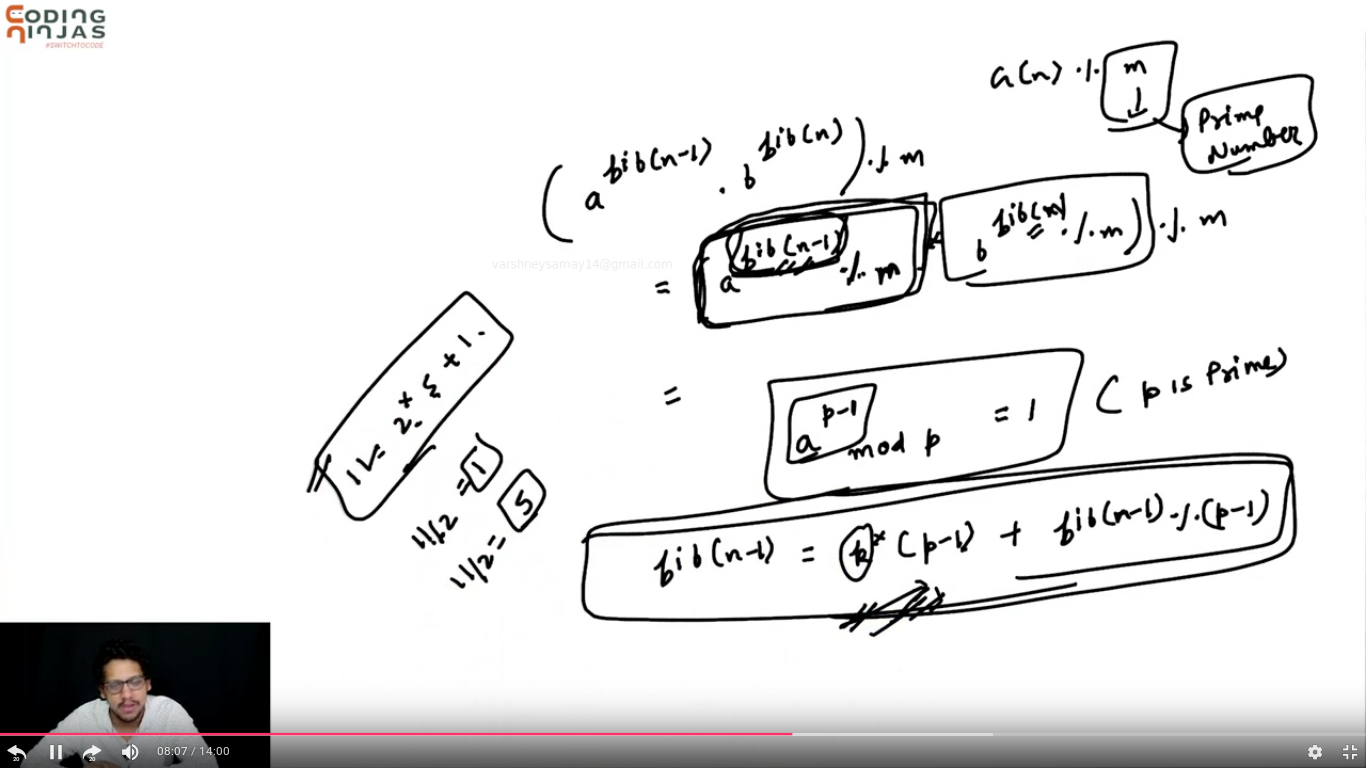 CODING
NINJAS
#SWITCHTOCODE
a(n) % m
Prime
Number
(a^fib(n-1) . b^fib(n)) % m
varshneysamay14@gmail.com
= a^fib(n-1) % m * b^fib(n) % m) % m
= a^p-1 mod p = 1 (p is Prime)
11 = 2 * 5 + 1.
11%2 = 1
11/2 = 5
fib(n-1) = k * (p-1) + fib(n-1) % (p-1)
20
20
08:07 / 14:00